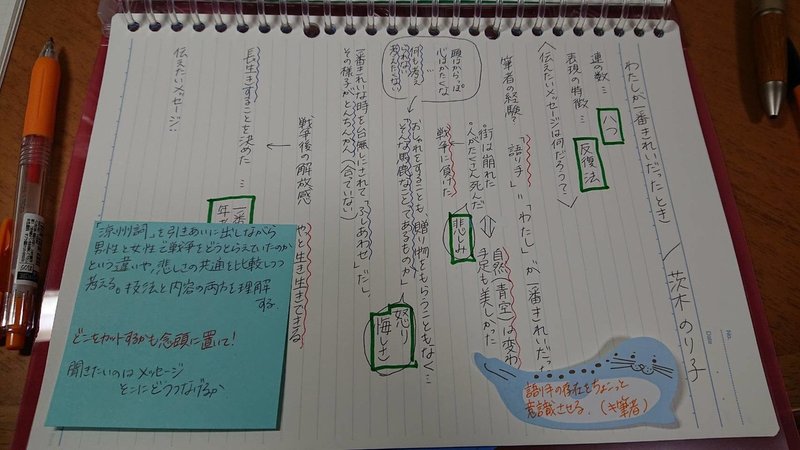 わたしが一番きれいだったとき／茨木のり子
連の数… 八つ
表現の特徴… 反復法
〈伝えたいメッセージは何だろう？〉
筆者の経験？ 「語り手」＝「わたし」が一番きれいだった
街は崩れた
人がたくさん死んだ
⇔
自然(青空)は変わ
手足も美しかった
戦争に負けた
悲しみ
頭はからっぽ
心はかたくな
何も考え
られない
考えたくない
おしゃれをすることも贈り物をもらうこともなく…
「そんな馬鹿なことであるものか」
怒り
悔しさ
一番きれいな時を台無しにされて「ふしあわせ」だし、
その様子がとんちんかん(合っていない)
戦争後の解放感
やっと生き生きできる
長生きすることを決めた… 一番
年
伝えたいメッセージ…
「涼州詞」を引きあいに出しながら
男性と女性で戦争をどうとらえていたのか
という違いや、悲しさの共通を比較しつつ
考える。技法と内容の両方を理解
する。
どこをカットするかも念頭に置いて！
聞きたいのはメッセージ
そこにどうつなげるか
語り手の存在をちょこっと
意識させる。(≠筆者)
No.
Date